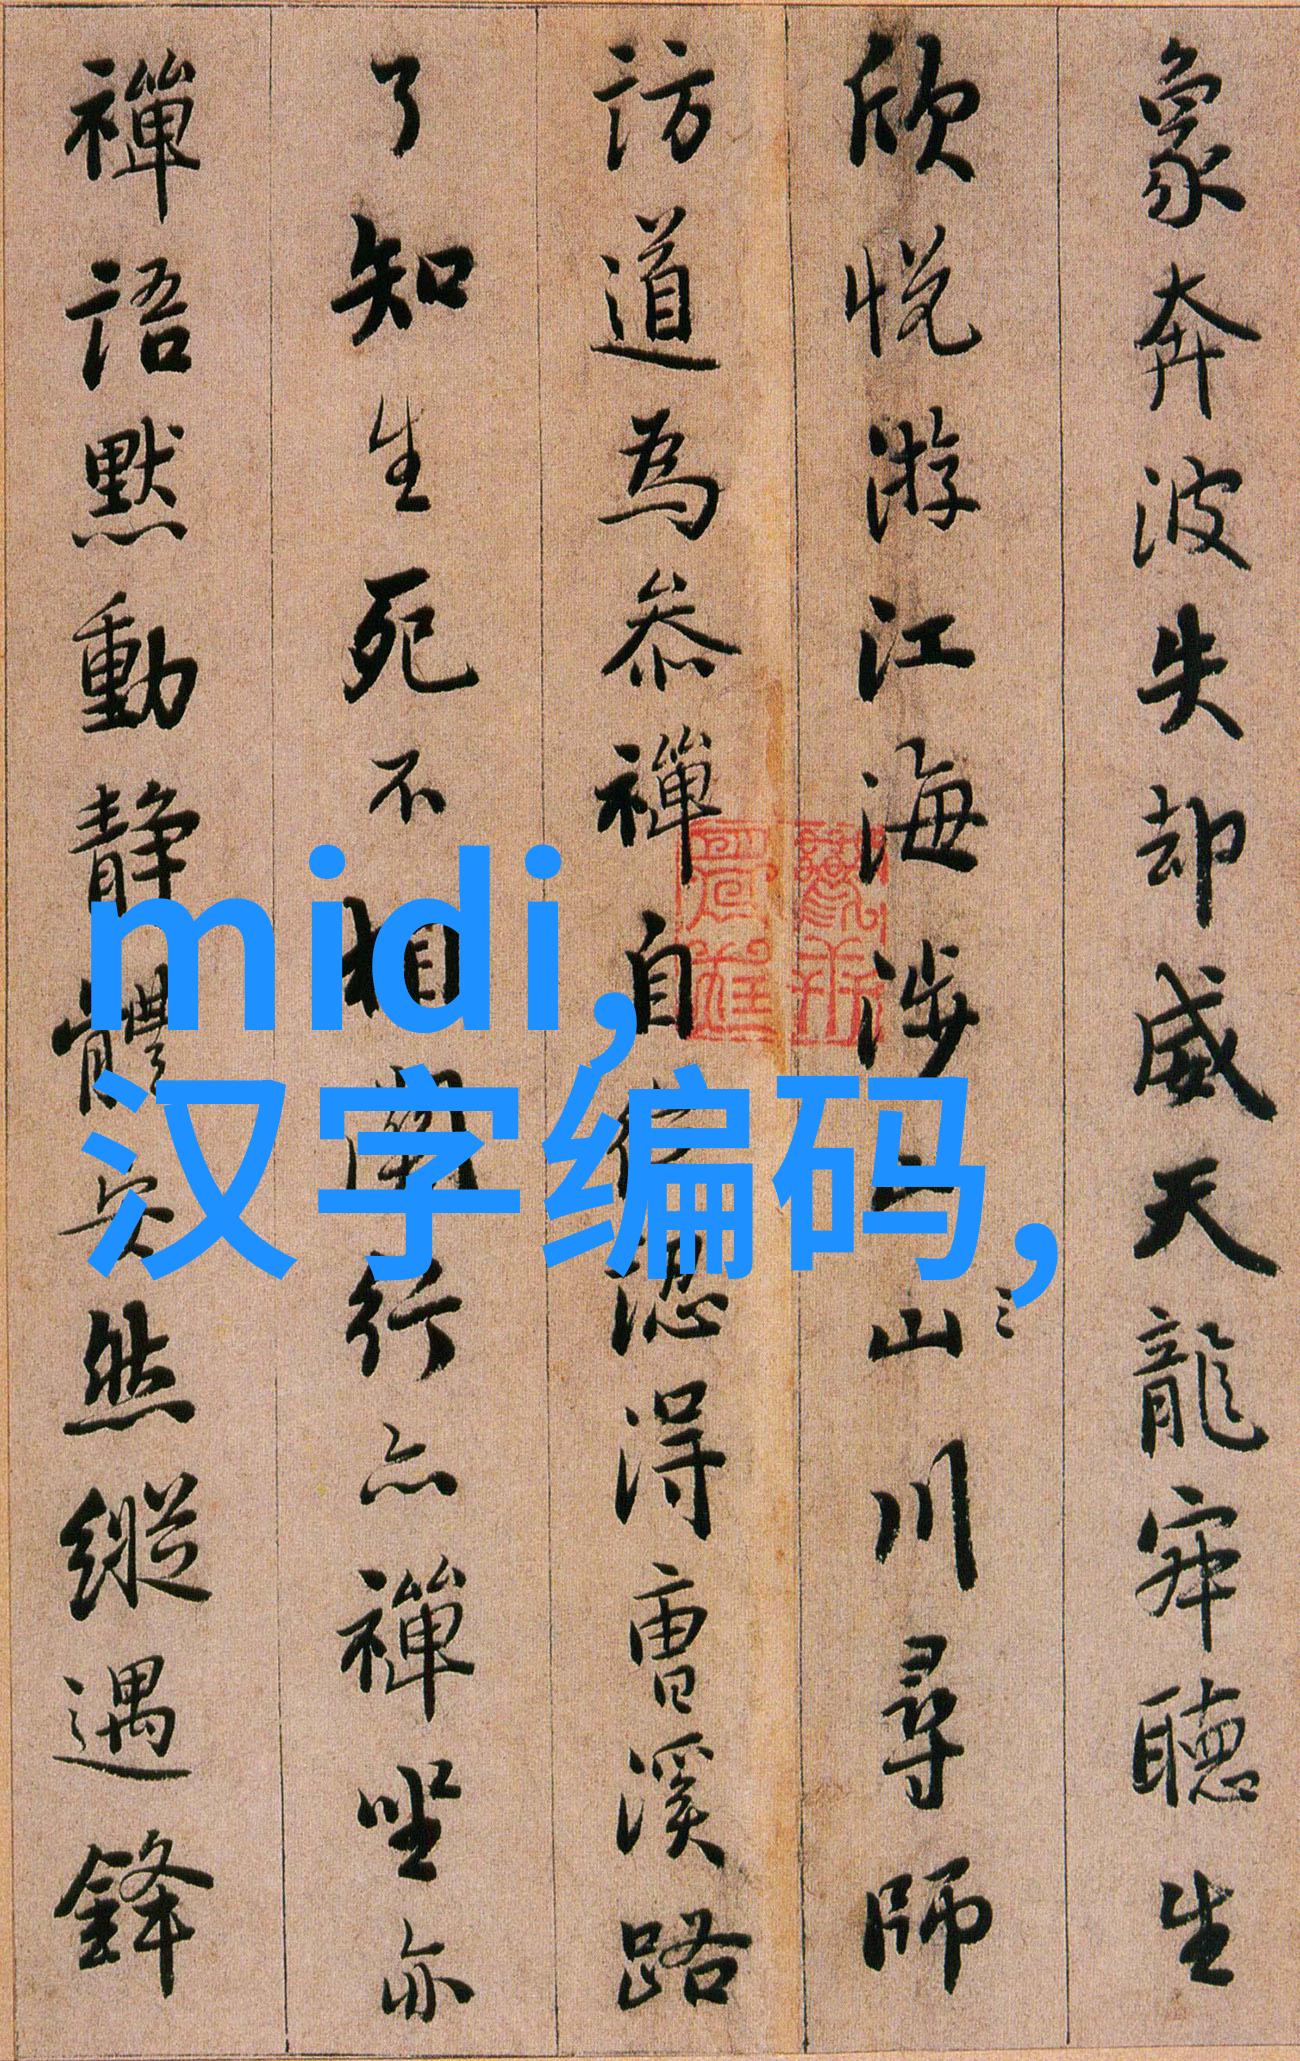 象奔波失却威天龍寂聽生
欣悅游江海涉山川尋師
訪道為叅禪自認得曹溪路
了知生死不相關行亦禪坐亦
禪語默動靜體安然縱遇鋒
midi,
汉字编码,